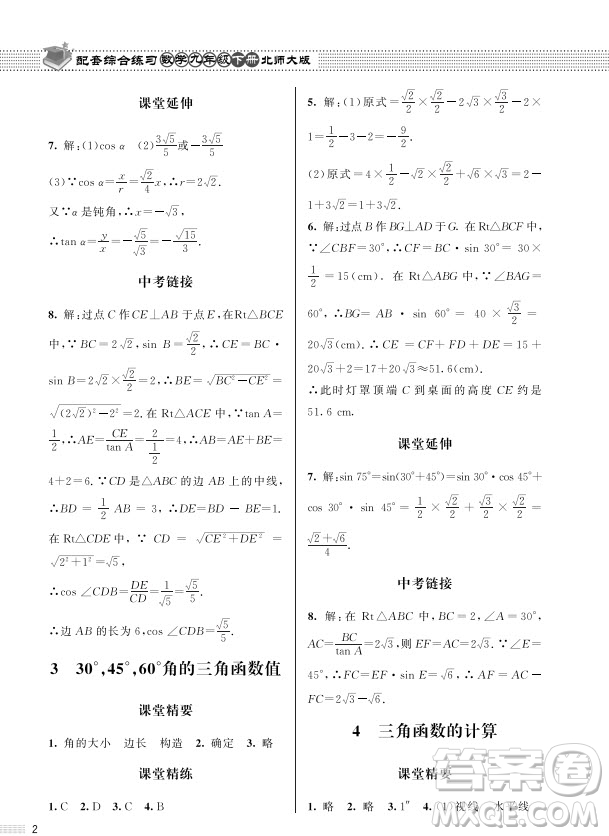 配套综合练习 数学九年级 下册 北师大版
课堂延伸
7. 解:(1)cos α  (2)3√5/5或−3√5/5
(3)∵cos α=x/r=√2/4 x,∴r=2√2.
又∵α是钝角,∴x=−√3,
∴tan α=y/x=−√5/√3=−√15/3.
中考链接
8. 解:过点C作CE⊥AB于点E,在Rt△BCE
中,∵BC=2√2,sin B=√2/2,∴CE=BC·
sin B=2√2×√2/2=2,∴BE=√(BC²−CE²)=
√((2√2)²−2²)=2.在Rt△ACE中,∵tan A=
1/2,∴AE=CE/tan A=2/(1/2)=4,∴AB=AE+BE=
4+2=6.∵CD是△ABC的边上的中线,
∴BD=1/2 AB=3,∴DE=BD−BE=1.
在Rt△CDE中,∵CD=√(CE²+DE²)=
√(2²+1²)=√5,
∴cos∠CDB=DE/CD=1/√5=√5/5.
∴边AB的长为6,cos∠CDB=√5/5.
3 30°,45°,60°角的三角函数值
课堂精要
1. 角的大小 边长 构造 2. 确定 3. 略
课堂精练
1. C 2. D 3. C 4. B
5. 解:(1)原式=√2/2×√2/2−2√3×√3/2−2×
1=1/2−3−2=−9/2.
(2)原式=4×1/2−√2/2×√2/2+√6×√3/√2=2−
1+3√2=1+3√2.
6. 解:过点B作BG⊥AD于G.在Rt△BCF中,
∵∠CBF=30°,∴CF=BC·sin 30°=30×
1/2=15(cm).在Rt△ABG中,∵∠BAG=
60°,∴BG=AB·sin 60°=40×√3/2=
20√3(cm).∴CE=CF+FD+DE=15+
20√3+2=17+20√3≈51.6(cm).
∴此时灯罩顶端C到桌面的高度CE约是
51.6 cm.
课堂延伸
7. 解:sin 75°=sin(30°+45°)=sin 30°·cos 45°+
cos 30°·sin 45°=1/2×√2/2+√3/2×√2/2=
(√2+√6)/4.
中考链接
8. 解:在Rt△ABC中,BC=2,∠A=30°,
AC=BC/tan A=2√3,则EF=AC=2√3.∵∠E=
45°,∴FC=EF·sin E=√6.∴AF=AC−
FC=2√3−√6.
4 三角函数的计算
课堂精要
1. 略 2. 略 3. 1″ 4. (1)视线 水平线
2